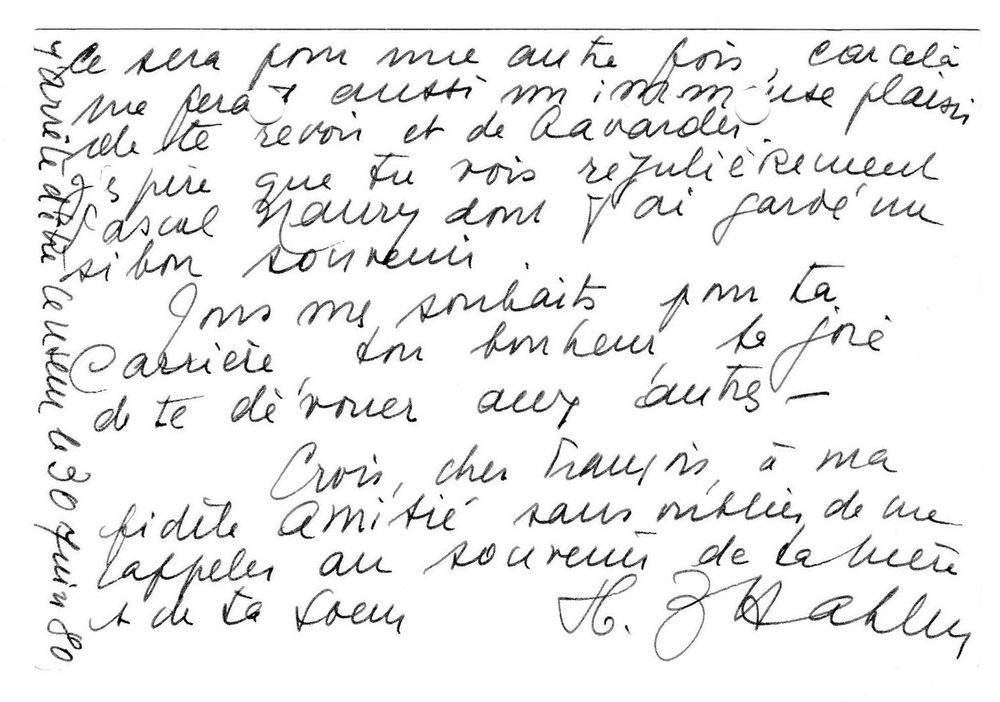 Ce sera pour une autre fois, car celà
me fera aussi un immense plaisir
de te revoir et de bavarder.
J'espère que tu vois régulièrement
Pascal Naury dont j'ai gardé un
si bon souvenir
Tous mes souhaits pour ta
Carrière, ton bonheur, ta joie
de te dévouer aux autres –
Crois, cher François, à ma
fidèle Amitié sans oublier de me
rappeler au souvenir de ta mère
et de ta soeur
H.
J'arrête d'être Censeur le 30 Juin 80